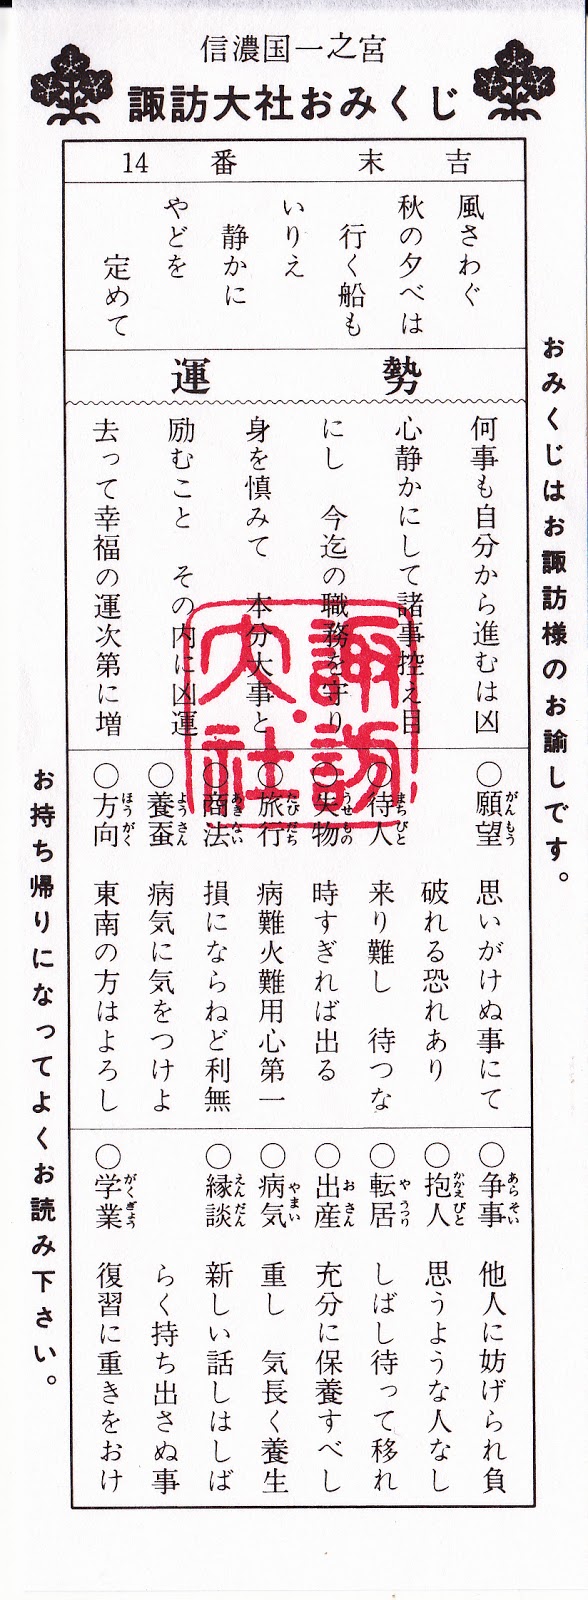 信濃国一之宮
諏訪大社おみくじ
14番 末吉
風さわぐ
秋の夕べは
行く船も
いりえ
静かに
やどを
定めて
運勢
何事も自分から進むは凶
心静かにして諸事控え目
にし 今迄の職務を守り
身を慎みて 本分大事と
励むこと その内に凶運
去って幸福の運次第に増
○願望 がんもう 思いがけぬ事にて
破れる恐れあり
○待人 まちびと 来り難し 待つな
○失物 うせもの 時すぎれば出る
○旅行 たびだち 病難火難用心第一
○商法 あきない 損にならねど利無
○養蚕 ようさん 病気に気をつけよ
○方向 ほうがく 東南の方はよろし
○争事 あらそい 他人に妨げられ負
○抱人 かかえびと 思うような人なし
○転居 やうつり しばし待って移れ
○出産 おさん 充分に保養すべし
○病気 やまい 重し 気長く養生
○縁談 えんだん 新しい話しはしば
らく持ち出さぬ事
○学業 がくぎょう 復習に重きをおけ
諏訪大社
おみくじはお諏訪様のお諭しです。
お持ち帰りになってよくお読み下さい。